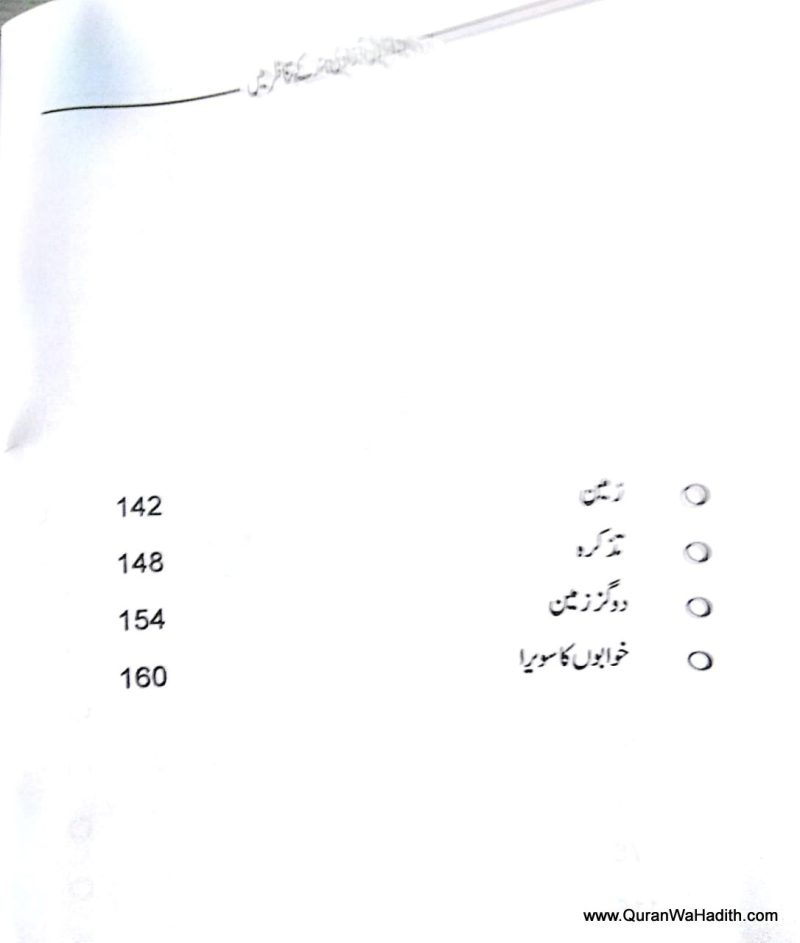 کے تناظر میں
زمین 142
تذکرہ 148
دو گز زمین 154
خوابوں کا سویرا 160
www.QuranWaHadith.com